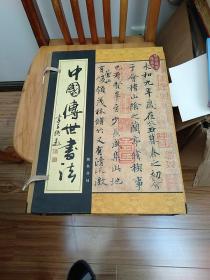 中國傳世書法
永和九年歲在癸丑暮春之初會
于會稽山陰之蘭亭脩稧事
也羣賢畢至少長咸集此地
有崇山峻領茂林脩竹又有清流激